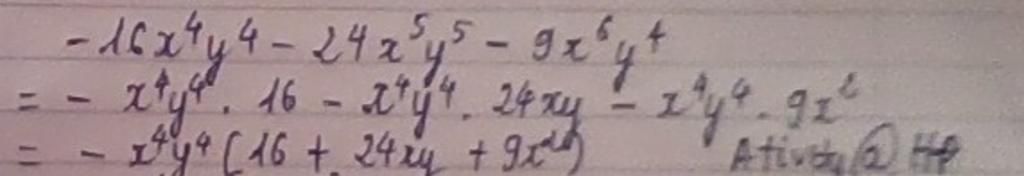 -16x⁴y⁴ - 24x⁵y⁵ - 9x⁶y⁴
= - x⁴y⁴. 16 - x⁴y⁴. 24xy - x⁴y⁴. 9x²
= - x⁴y⁴(16 + 24xy + 9x²)